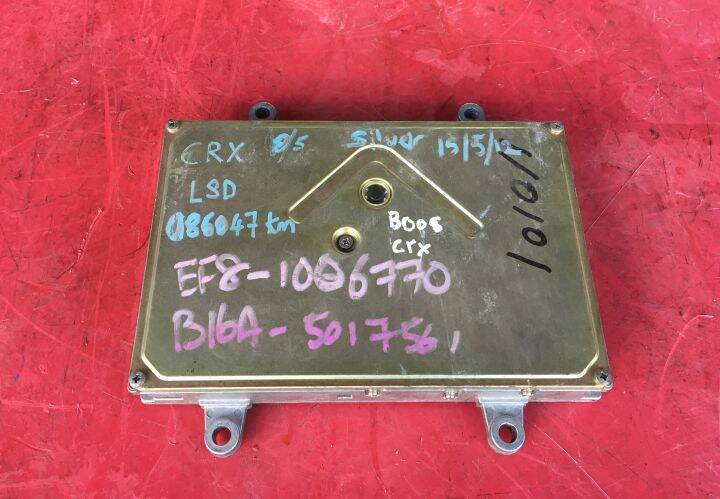 CRX 8/5 Silver 15/5/12
LSD
186047 km
Boos
crx
EF8-1006770
B16A-5017561
10101